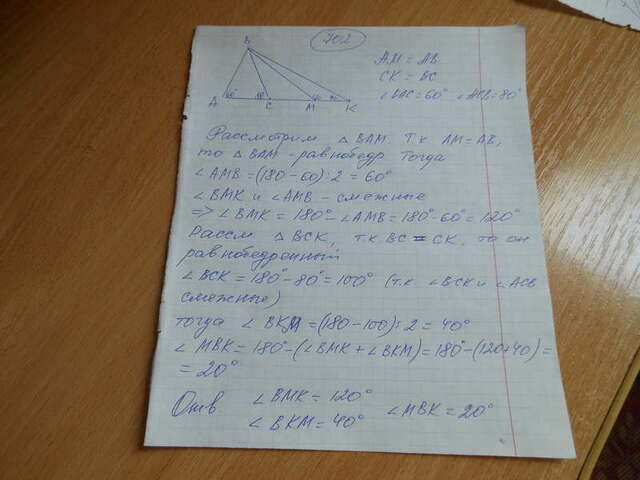 702
B
A
C
M
K
AM = AB
CK = BC
∠BAC = 60° ∠ACB = 80°
Рассмотрим △ BAM. Т.к AM = AB,
то △ BAM - равнобедр. Тогда
∠AMB = (180 - 60) : 2 = 60°
∠BMK и ∠AMB - смежные
=> ∠BMK = 180° - ∠AMB = 180° - 60° = 120°
Рассм △ BCK, т.к. BC = CK, то он
равнобедренный
∠BCK = 180° - 80° = 100° (т.к ∠BCK и ∠ACB
смежные)
тогда ∠BKM = (180 - 100) : 2 = 40°
∠MBK = 180° - (∠BMK + ∠BKM) = 180° - (120 + 40) =
= 20°
Отв ∠BMK = 120°
∠BKM = 40° ∠MBK = 20°